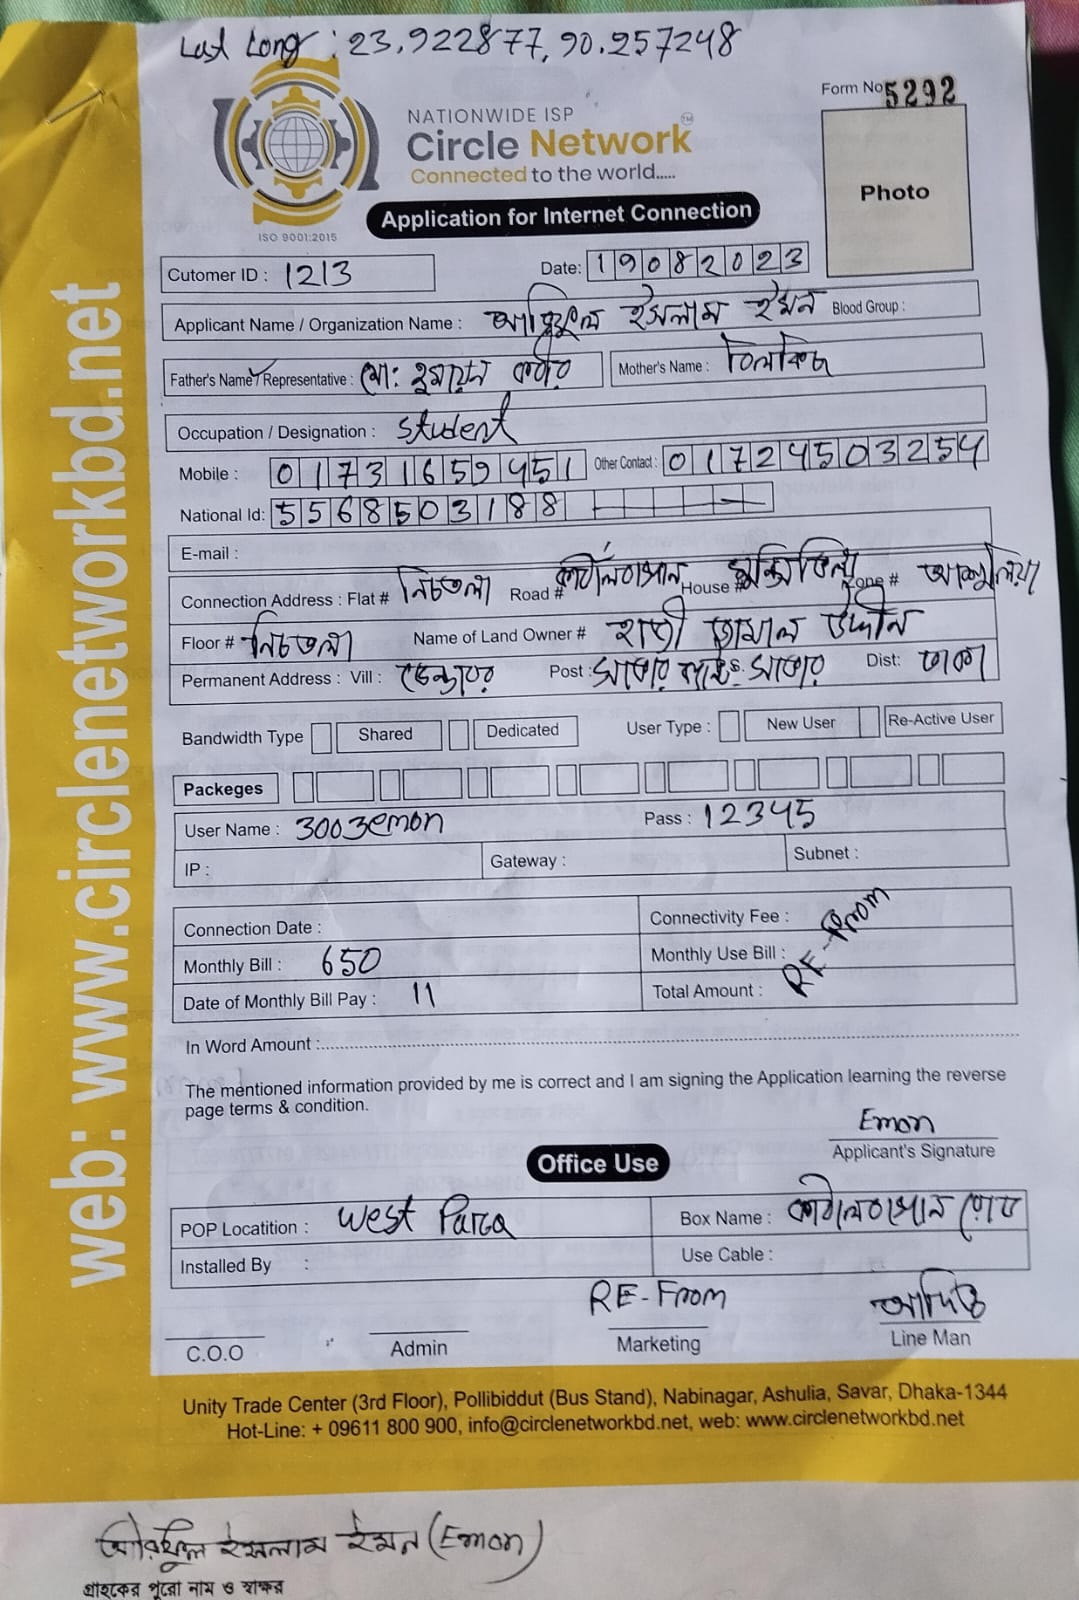 Lat Long : 23.922877, 90.257248
Form No 5292
NATIONWIDE ISP
Circle Network TM
Connected to the world.....
Photo
ISO 9001:2015
Application for Internet Connection
Cutomer ID : 1213 Date: 19082023
Applicant Name / Organization Name : ইসলাম ইমন Blood Group :
Father's Name / Representative : মো: হুমায়ন কবীর Mother's Name : বিলকিজ
Occupation / Designation : Student
Mobile : 01731659451 Other Contact : 01724503254
National Id: 5568503188
E-mail :
Connection Address : Flat # নিচতলা Road # House # Zone # আশুলিয়া
Floor # নিচতলা Name of Land Owner # হাজী জামাল উদ্দীন
Permanent Address : Vill : ডেন্ডাবর Post : সাভার সাভার Dist: ঢাকা
Bandwidth Type Shared Dedicated User Type : New User Re-Active User
Packeges
User Name : 3003emon Pass : 12345
IP : Gateway : Subnet :
Connection Date : Connectivity Fee :
Monthly Bill : 650 Monthly Use Bill : RE-From
Date of Monthly Bill Pay : 11 Total Amount :
In Word Amount :
The mentioned information provided by me is correct and I am signing the Application learning the reverse
page terms & condition.
Emon
Applicant's Signature
Office Use
POP Locatition : West Para Box Name : কাঠালবাগান গেট
Installed By : Use Cable :
RE-From
C.O.O Admin Marketing Line Man
Unity Trade Center (3rd Floor), Pollibiddut (Bus Stand), Nabinagar, Ashulia, Savar, Dhaka-1344
Hot-Line: + 09611 800 900, info@circlenetworkbd.net, web: www.circlenetworkbd.net
web: www.circlenetworkbd.net
ইসলাম ইমন (Emon)
গ্রাহকের পুরো নাম ও স্বাক্ষর